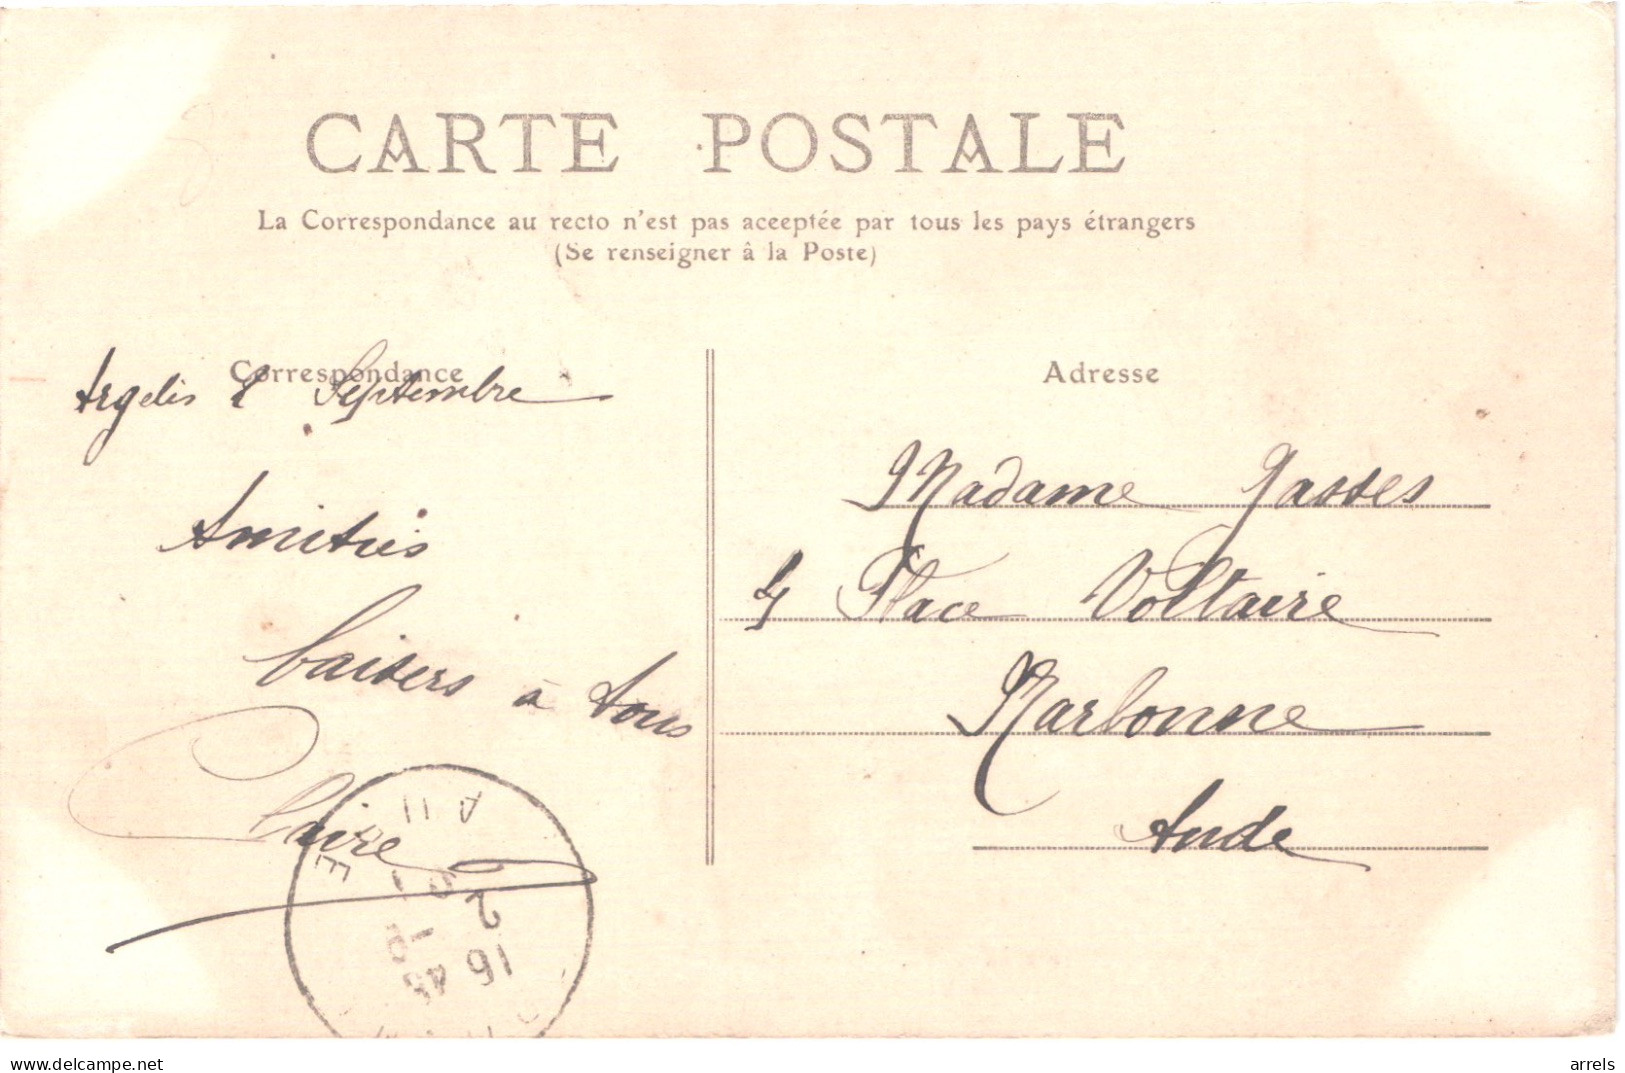 CARTE POSTALE
La Correspondance au recto n'est pas acceptée par tous les pays étrangers
(Se renseigner à la Poste)
Correspondance
Argelès 2 Septembre
Amitiés
baisers à tous
Claire
Adresse
Madame Gasses
4 Place Voltaire
Narbonne
Aude
AUDE
16 45
2
delcampe.net
arrels